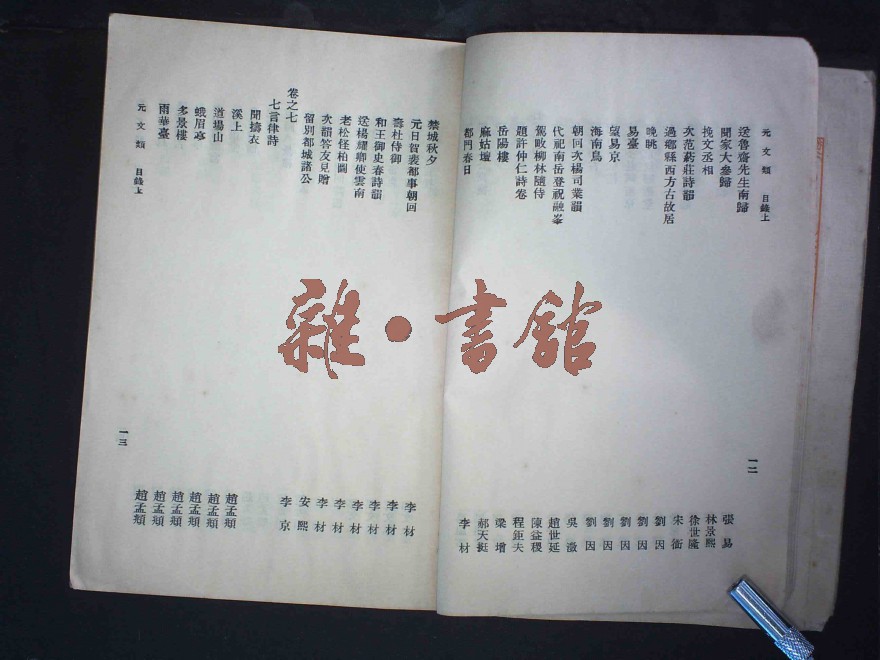 元文類 目錄上
送魯齋先生南歸 張易
聞家大參歸 林景熙
挽文丞相 徐世隆
次范葯莊詩韻 宋衜
過鄉縣西方古故居 劉因
晚眺 劉因
易臺 劉因
望易京 劉因
海南鳥 劉因
朝回次楊司業韻 吳澂
代祀南岳登祝融峯 趙世延
駕畋柳林隨侍 陳益稷
題許仲仁詩卷 程鉅夫
岳陽樓 梁增
麻姑壇 郝天挺
都門春日 李材
一二
禁城秋夕 李材
元日賀裴都事朝回 李材
壽杜侍御 李材
和王御史春詩韻 李材
送楊耀卿使雲南 李材
老松怪柏圖 李材
次韻答友見贈 安熙
留別都城諸公 李京
卷之七
七言律詩
聞擣衣 趙孟頫
溪上 趙孟頫
道場山 趙孟頫
蛾眉亭 趙孟頫
多景樓 趙孟頫
雨華臺 趙孟頫
元文類 目錄上
一三
雜·書館